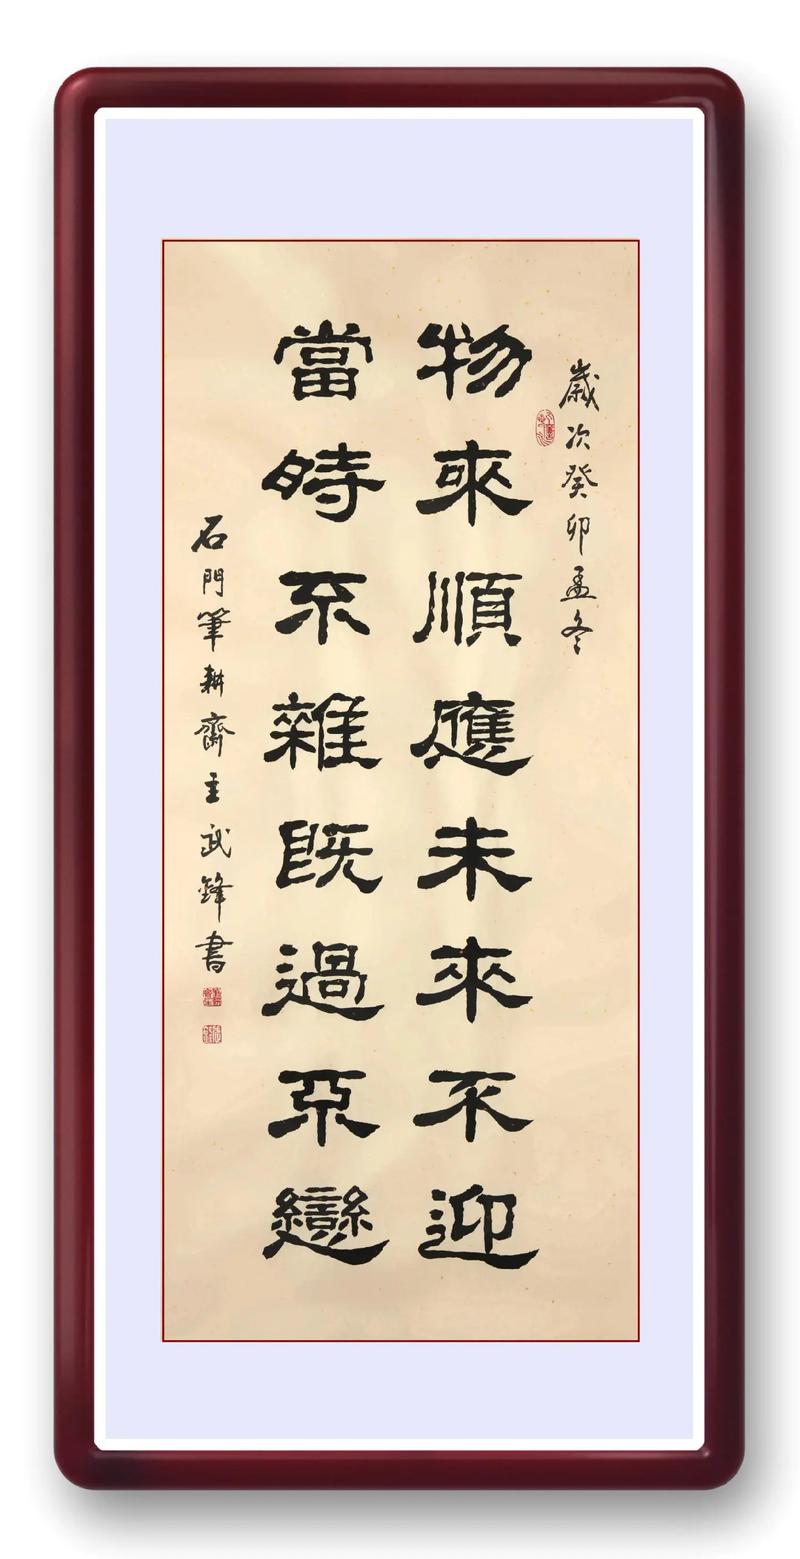 歲次癸卯孟冬
物來順應未來不迎
當時不雜既過不戀
石門筆耕齋主武鋒書